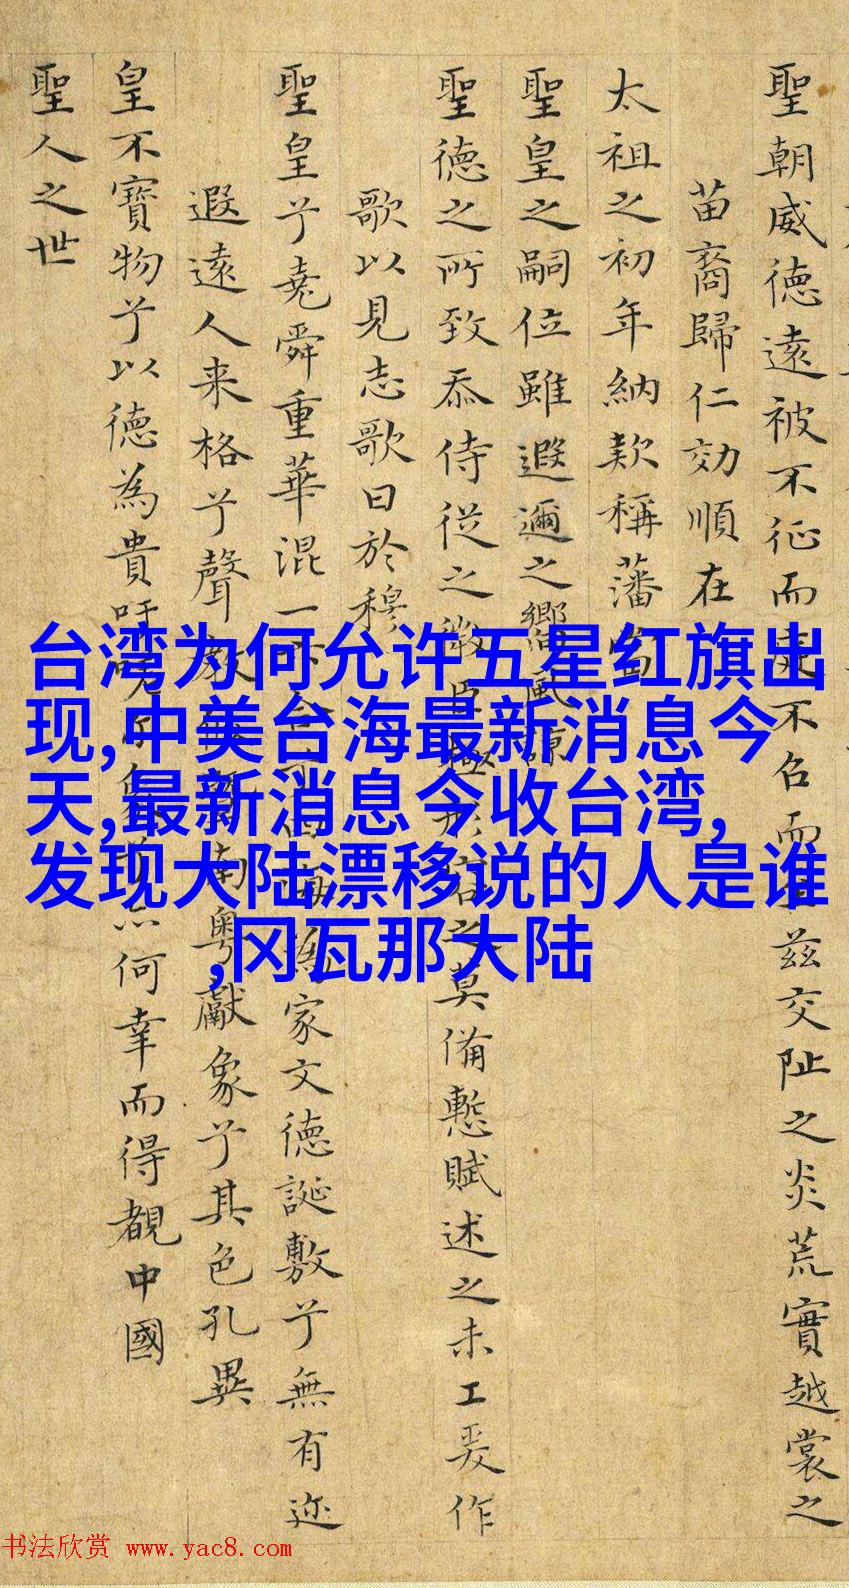 聖朝威德遠被不征而不召而茲交阯之炎荒實越裳之
苗裔歸仁効順在
太祖之初年納款稱藩當
聖皇之嗣位雖遐邇之嚮風諒
聖德之所致忝侍從之微臣極形容之莫備慙賦述之未工爰作
歌以見志歌曰於穆
聖皇兮堯舜重華混一海為家文德誕敷兮無有迩
遐遠人来格兮聲教南粵獻象兮其色孔異
皇不寶物兮以德為貴吁何幸而得覩中國
聖人之世
台湾为何允许五星红旗出
现,中美台海最新消息今
天,最新消息今收台湾,
发现大陆漂移说的人是谁
,冈瓦那大陆
书法欣赏 www.yac8.com